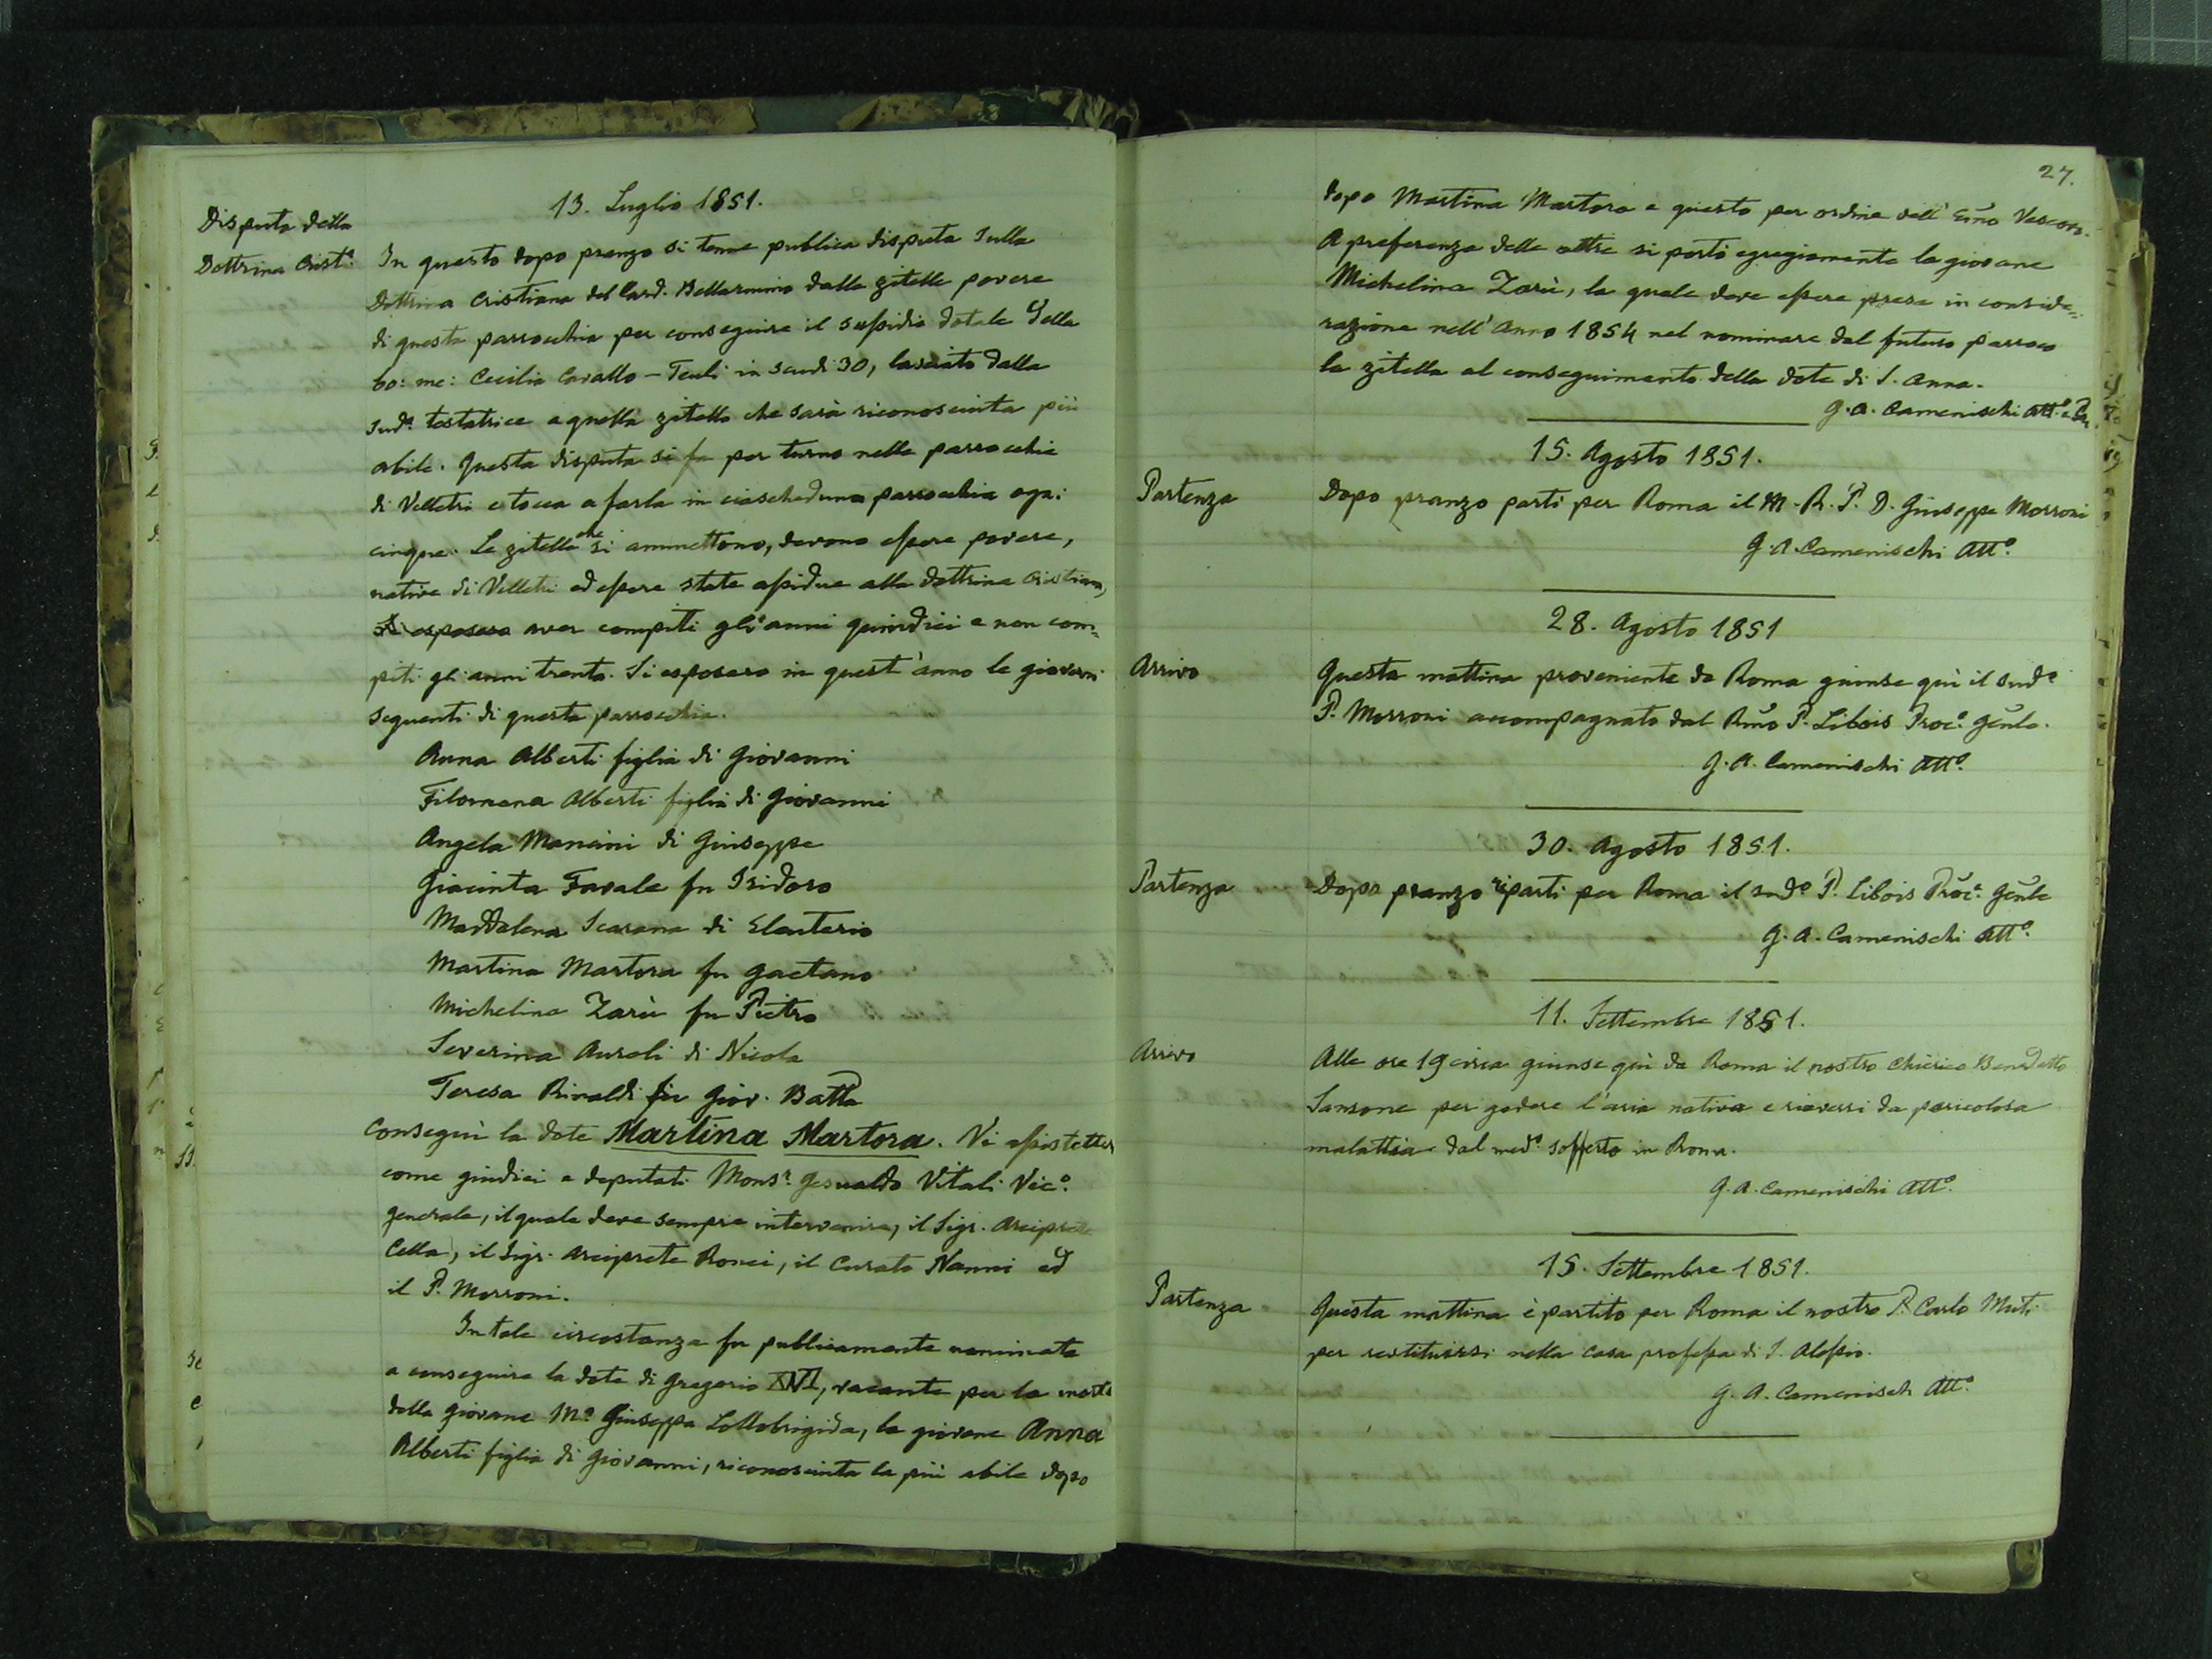 13. Luglio 1851.
Disputa della
Dottrina Crist.ª
In questo dopo pranzo si tenne publica disputa sulla
Dottrina Cristiana del Card. Bellarmino dalle zitelle povere
di questa parrocchia per conseguire il sussidio dotale della
bo: me: Cecilia Cavallo - Teuli in scudi 30, lasciato dalla
sud.ª testatrice a quella zitella che sarà riconosciuta più
abile. Questa disputa si fa per turno nelle parrocchie
di Velletri e tocca a farla in ciascheduna parrocchia ogni
cinque. Le zitelle che si ammettono, devono essere povere,
native di Velletri ed essere state assidue alla dottrina Cristiana,
esposero aver compiti gli anni quindici e non com=
piti gli anni trenta. Si esposero in quest'anno le giovani
seguenti di questa parrocchia.
Anna Alberti figlia di Giovanni
Filomena Alberti figlia di Giovanni
Angela Mancini di Giuseppe
Giacinta Favale fu Isidoro
Maddalena Scarana di Eleuterio
Martina Martora fu Gaetano
Michelina Zarù fu Pietro
Severina Aureli di Nicola
Teresa Rinaldi fu Giov. Batta
Conseguì la dote Martina Martora. Vi assistettero
come giudici e deputati Mons.r Gesualdo Vitali Vic.º
generale, il quale deve sempre intervenire, il Sigr. Arciprete
Cella, il Sigr. Arciprete Ronci, il Curato Nanni ed
il P. Morroni.
In tale circostanza fu publicamente nominata
a conseguire la dote di Gregorio XVI, vacante per la morte
della giovane M.ª Giuseppa Lollobrigida, la giovane Anna
Alberti figlia di Giovanni, riconosciuta la più abile dopo
27.
dopo Martina Martora e questo per ordine dell' Emo Vescovo.
A preferenza delle altre si portò egregiamente la giovane
Michelina Zarù, la quale deve essere presa in conside=
razione nell'anno 1854 nel nominare dal futuro parroco
la zitella al conseguimento della dote di S. Anna.
G. A. Camenischi Att.º e
15. Agosto 1851.
Partenza
Dopo pranzo partì per Roma il M. R. P. D. Giuseppe Morroni
G. A. Camenischi Att.º
28. Agosto 1851
Arrivo
Questa mattina proveniente da Roma giunse quì il sud.º
P. Morroni accompagnato dal Rmo P. Libois Proc.e Genle.
G. A. Camenischi Att.º
30. Agosto 1851.
Partenza
Dopo pranzo ripartì per Roma il sud.º P. Libois Proc.e Genle
G. A. Camenischi Att.º
11. Settembre 1851.
Arrivo
Alle ore 19 circa giunse quì da Roma il nostro Chierico Benedetto
Sansone per godere l'aria nativa e riaversi da pericolosa
malattia dal med.º sofferto in Roma.
G. A. Camenischi Att.º
15. Settembre 1851.
Partenza
Questa mattina è partito per Roma il nostro P. Carlo Muti
per restituirsi nella casa professa di S. Alessio.
G. A. Camenisch Att.º